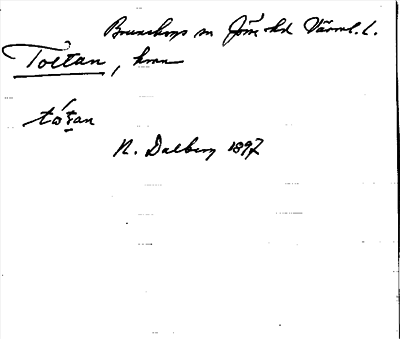 Brunskogs sn Jösse hd Värml. l.
Toetan, hmn
tó̀tan
N. Dalberg 1897